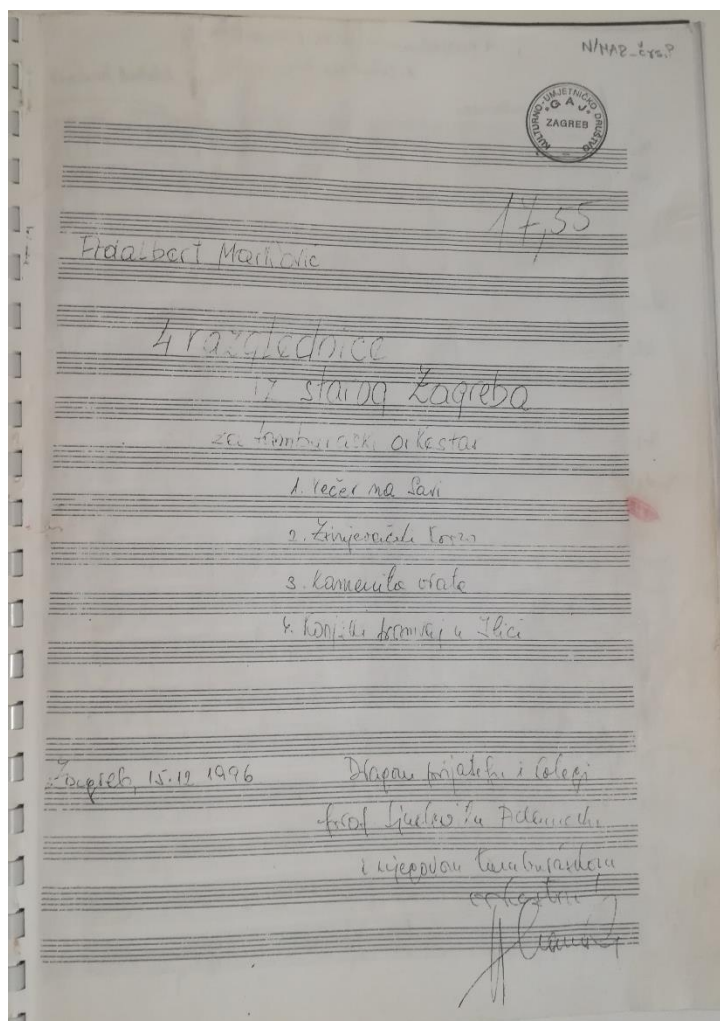 N/MAR-črs.?
KULTURNO-UMJETNIČKO DRUŠTVO
"GAJ"
ZAGREB
17,55
Fidalbert Marković
4 razglednice
iz starog Zagreba
za tamburaški orkestar
1. Večer na Savi
2. Zrinjevački korzo
3. Kamenita vrata
4. Konjski tramvaj u Ilici
Zagreb, 15.12 1996
Dragom prijatelju i kolegi
prof
i njegovom tamburaškom
orkestru